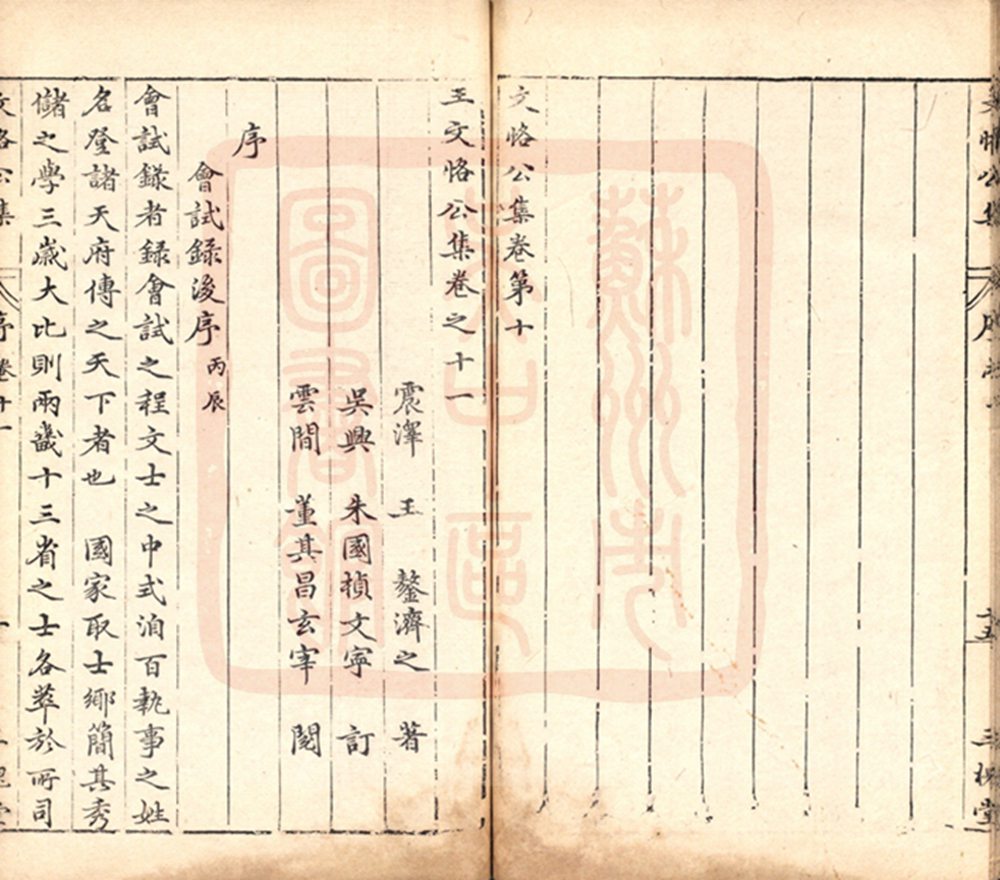 文恪公集卷第十
王文恪公集卷之十一
震澤 王 鏊濟之 著
吳興 朱國楨文寧 訂
雲間 董其昌玄宰 閱
序
會試録後序 丙辰
會試録者録會試之程文士之中式洎百執事之姓
名登諸天府傳之天下者也 國家取士鄉簡其秀
儲之學三歲大比則兩畿十三省之士各萃於所司
蘇州市
圖書館